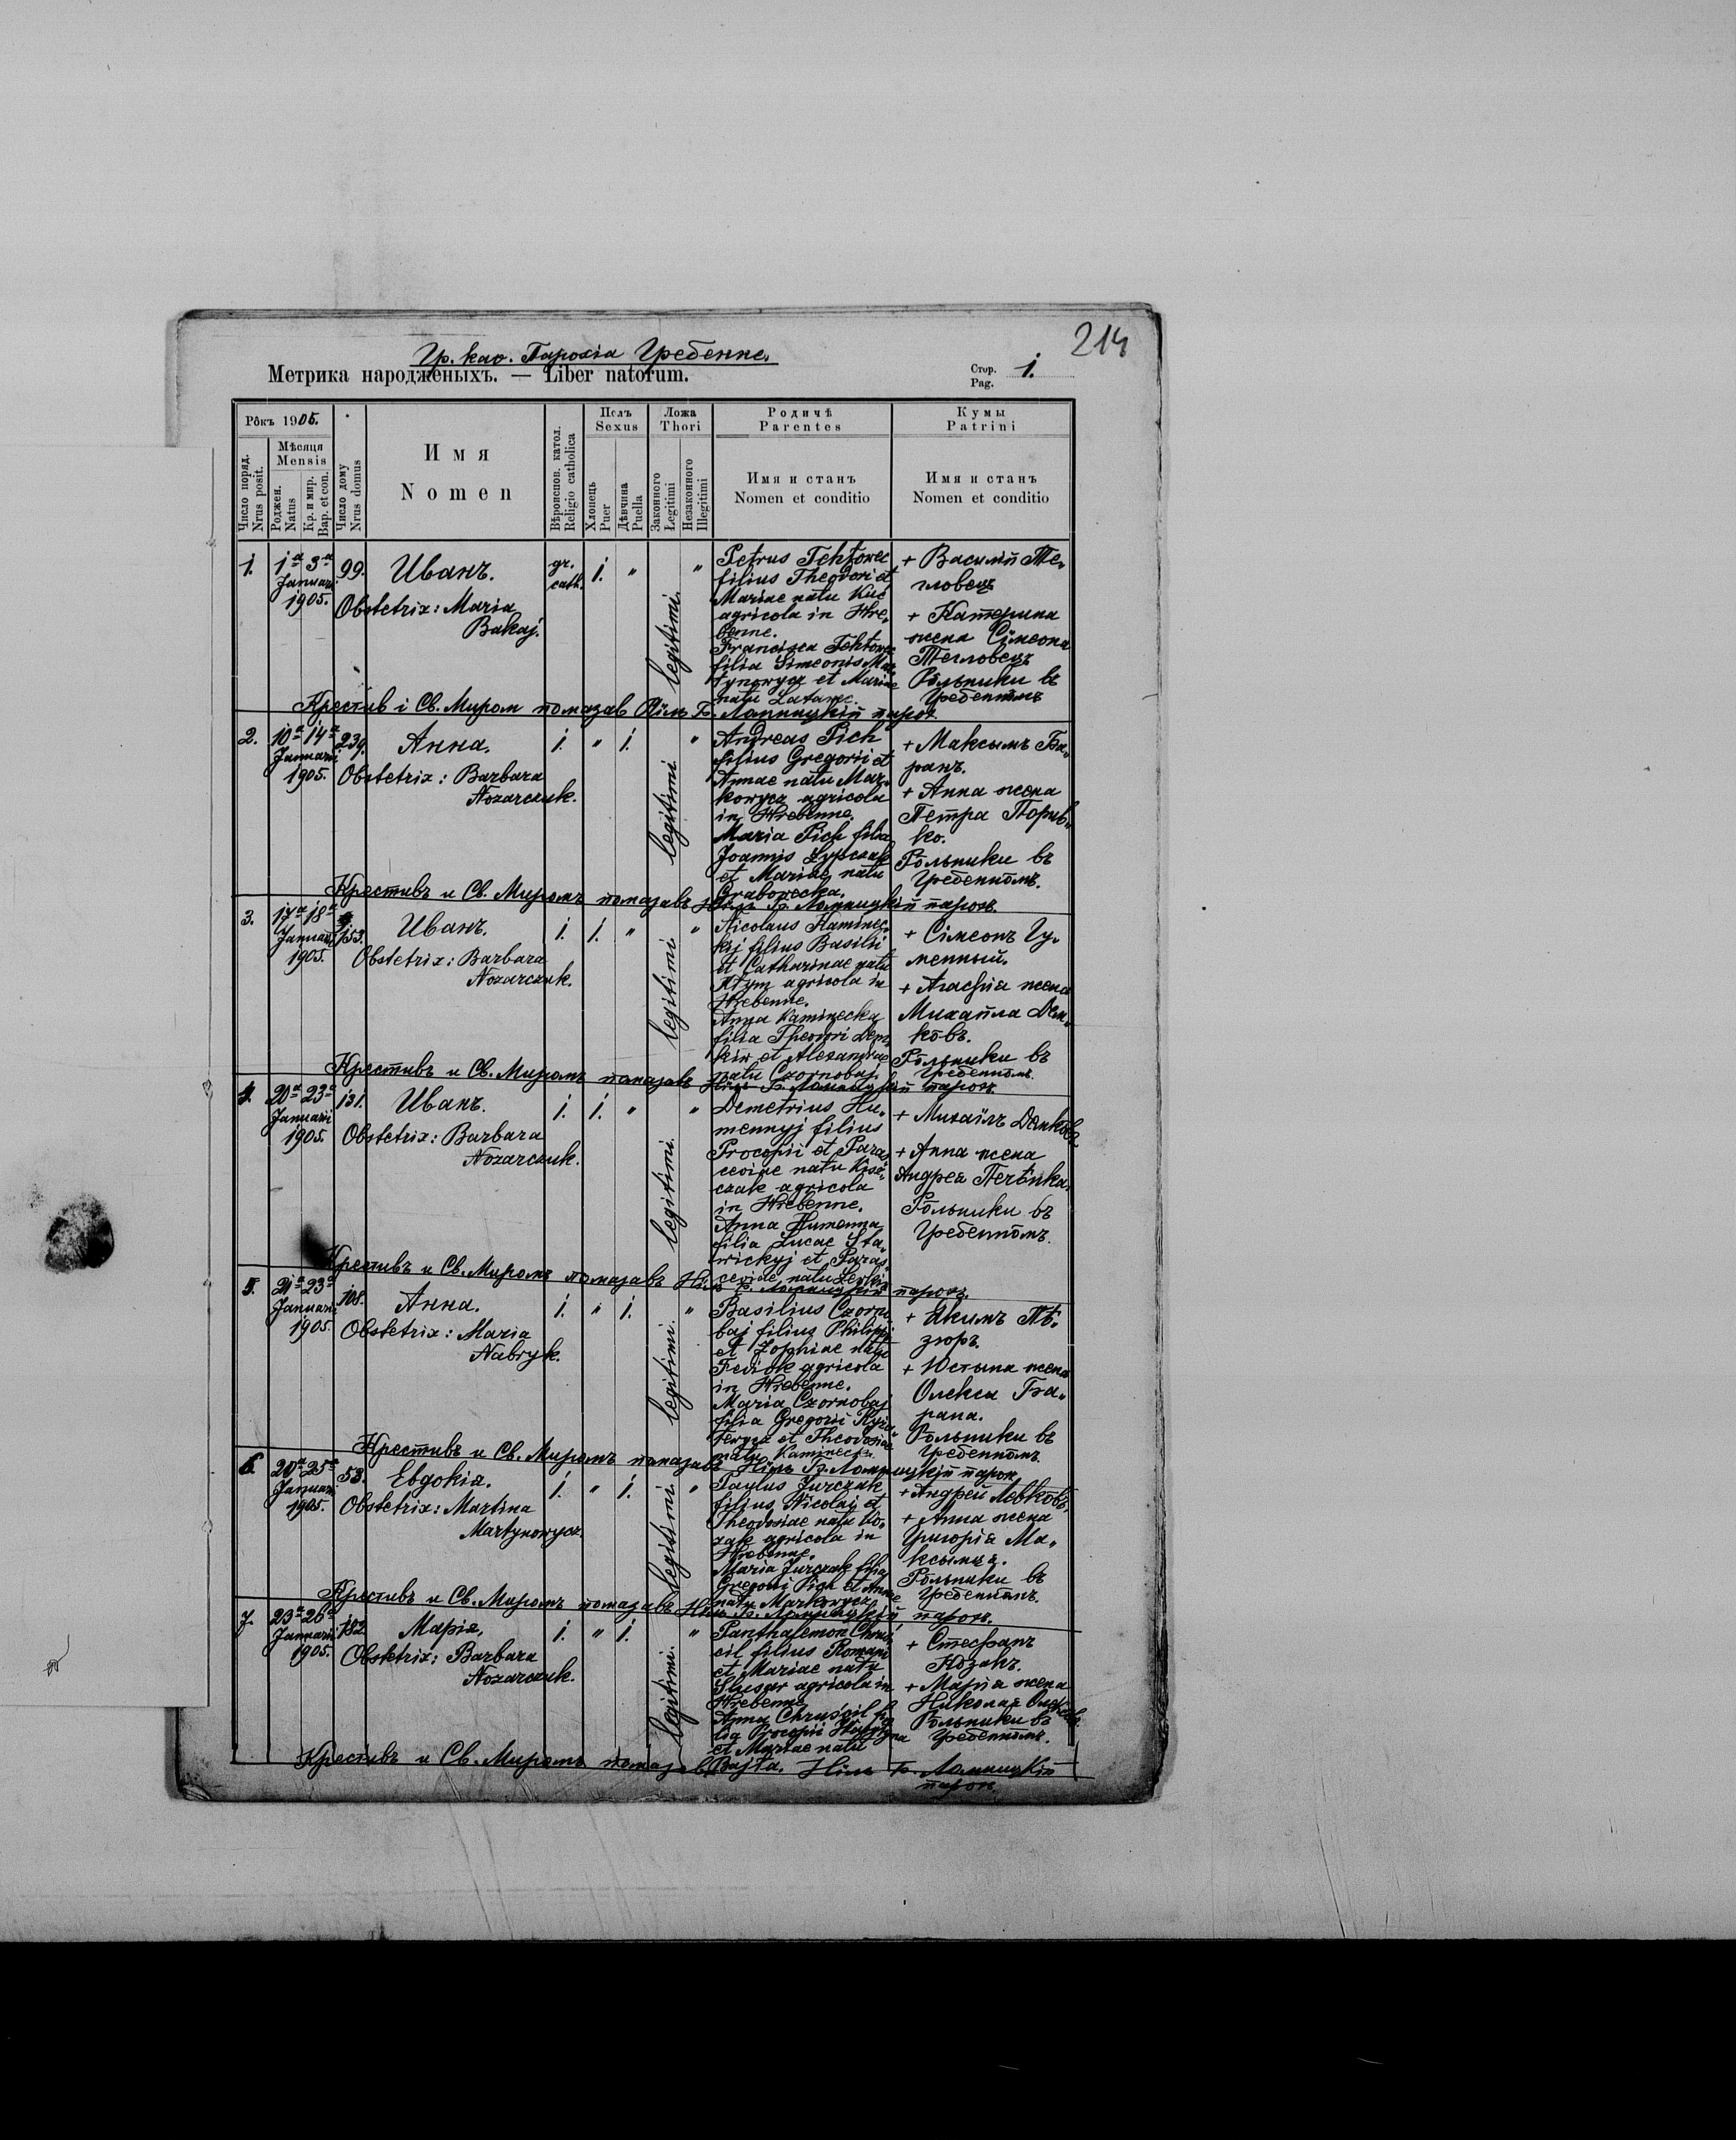 214
Гр. као. Парохія Гребенне.
Метрика народженыхъ. — Liber natorum.
Стор. Pag. 1.
Рôкъ 1905.
Число поряд. Nrus posit.
Мѣсяця Mensis
Роджен. Natus
Кр. и мир. Bap. et con.
Число дому Nrus domus
Имя Nomen
Вѣроиспов. катол. Religio catholica
Полъ Sexus
Хлопець Puer
Дѣвчина Puella
Ложа Thori
Законного Legitimi
Незаконного Illegitimi
Родичѣ Parentes
Имя и станъ Nomen et conditio
Кумы Patrini
Имя и станъ Nomen et conditio
1. 1a 3a Januari 1905. 99. Иванъ. gr. cath. 1. " legitimi "
Obstetrix: Maria
Bakaj.
Petrus Tehtowec
filius Theodori et
Mariae natu Kuć
agricola in Hre-
benne.
Francisca Tehtowec
filia Simeonis Mar-
tynowycz et Mariae
natu Latawec.
+ Василій Те-
гловець
+ Катерина
жена Сімеона
Тегловець
Рôльники въ
Гребеннôмъ
Крестив і Св. Миром помазав Ніль Б. Ломницкій парох
2. 10a 14a Januarii 1905. 239. Анна. 1. " 1. legitimi "
Obstetrix: Barbara
Nozarczuk.
Andreas Pich
filius Gregorii et
Annae natu Mar-
kowycz agricola
in Hrebenne.
Maria Pich filia
Joannis Łypczak
et Mariae natu
Graborecka.
+ Максымъ Ба-
ранъ.
+ Анна жена
Петра Порив-
ко.
Рôльники въ
Гребеннôмъ.
Крестивъ и Св. Миромъ помазавъ Ніль Б. Ломницкій парох.
3. 17a 18a Januari 1905. 153. Иванъ. 1. 1. " legitimi "
Obstetrix: Barbara
Nozarczuk.
Nicolaus Kaminec-
kij filius Basilii
et Catharinae natu
Kłym agricola in
Hrebenne.
Anna Kaminecka
filia Theodori Dem-
kiw et Alexandrae
natu Czornobaj.
+ Сімеонъ Гу-
менный.
+ Агафія жена
Михаила Дем-
кôвъ.
Рôльники въ
Гребеннôмъ.
Крестивъ и Св. Миромъ помазавъ Ніль Б. Ломницкій парох.
4. 20a 23a Januarii 1905. 131. Иванъ. 1. 1. " legitimi. "
Obstetrix: Barbara
Nozarczuk.
Demetrius Hu-
mennyj filius
Procopii et Paras-
ceviae natu
czak agricola
in Hrebenne.
Anna Humenna
filia Lucae Sta-
wickyj et Paras-
ceviae natu Lewkiw
+ Михаіль Демкôвъ
+ Анна жена
Андрея Печѣнка.
Рôльники въ
Гребеннôмъ.
Крестивъ и Св. Миромъ помазавъ Ніль Б. Ломницкій парох.
5. 21a 23a Januari 1905. 108. Анна. 1. " 1. legitimi. "
Obstetrix: Maria
Nabryk.
Basilius Czorno-
baj filius Philippi
et Zophiae natu
Fediok agricola
in Hrebenne.
Maria Czornobaj
filia Gregorii
et Theodosiae
natu Kaminecka.
+ Якимъ Пѣ-
зюръ.
+ Юстына жена
Олекси Ба-
рана.
Рôльники въ
Гребеннôмъ.
Крестивъ и Св. Миромъ помазавъ Ніль Б. Ломницкій парох.
6. 20a 25a Januari 1905. 53. Евдокія. 1. " 1. legitimi. "
Obstetrix: Martina
Martynowycz
Paulus Jurczak
filius Nicolai et
Theodosiae natu Ko-
zak agricola in
Hrebenne.
Maria Jurczak filia
Gregorii Pich et Annae
natu Markowycz.
+ Андрей Левкôвъ,
+ Анна жена
Григорія Ма-
ксымця.
Рôльники въ
Гребеннôмъ.
Крестивъ и Св. Миромъ помазавъ Ніль Б. Ломницкій парох.
7. 23a 26a Januari 1905. 182. Марія. 1. " 1. legitimi. "
Obstetrix: Barbara
Nozarczuk.
Panthalemon Chruś-
cil filius Romani
et Mariae natu
Slusar agricola in
Hrebenne
Anna Chruścil fi-
lia Procopii
et Mariae natu
Bajta.
+ Стефанъ
Козакъ.
+ Марія жена
Николая
Рôльники въ
Гребеннôмъ.
Крестивъ и Св. Миромъ помазавъ Ніль Б. Ломницкій
парох.